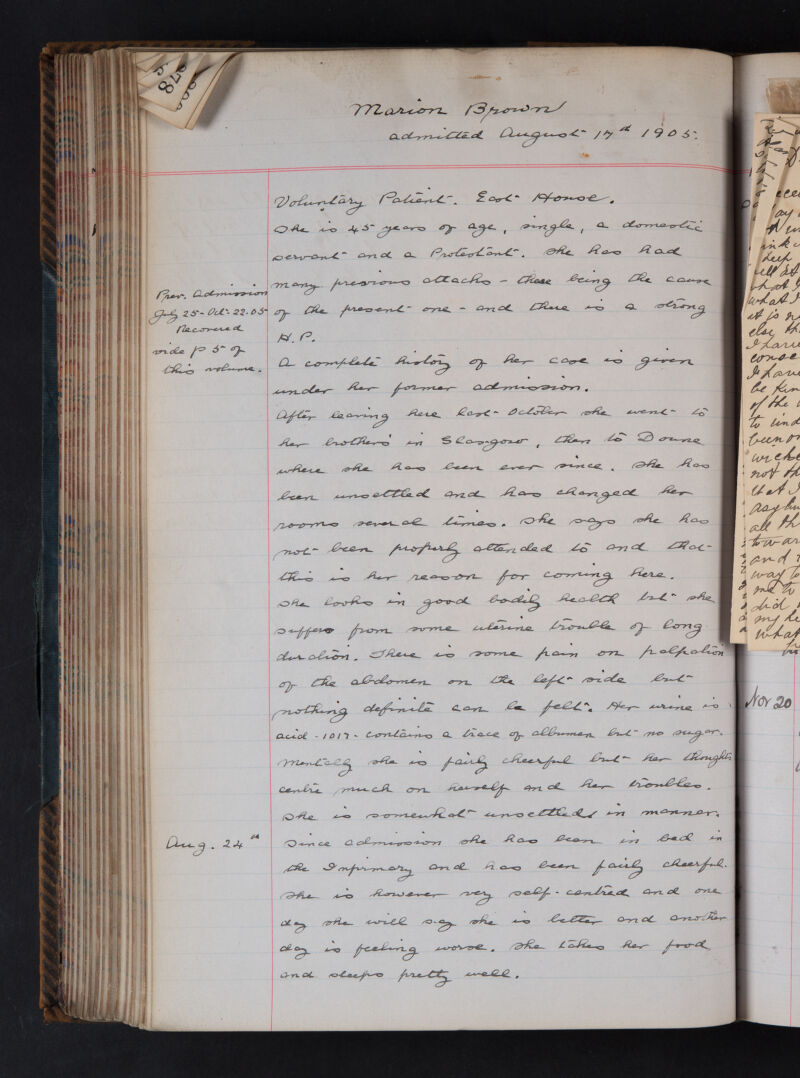 Marion Brown
admitted August 17th 1905.
Voluntary Patient. East House.
She is 45 years of age, single, a domestic
servant and a Protestant. She has had
many previous attacks - these being the cause
of the present one - and there is a strong
H.P.
A complete history of her case is given
under her former admission.
After leaving here last October she went to
her brother's in Glasgow, then to Doune
where she has been ever since. She has
been unsettled and has changed her
rooms several times. She says she has
not been properly attended to and that
this is her reason for coming here.
She looks in good bodily health but she
suffers from some uterine trouble of long
duration. There is some pain on palpation
of the abdomen on the left side but
nothing definite can be felt. Her urine is
acid - 1017 - contains a trace of albumen but no sugar.
Mentally she is fairly cheerful but her thoughts
centre much on herself and her troubles.
She is somewhat unsettled in manner.
Since admission she has been in bed in
the Infirmary and has been fairly cheerful.
She is however very self-centred and one
day she will say she is better and another
day is feeling worse. She takes her food
and sleeps pretty well.
Prev. Admission
July 25 - Oct. 22. 05
Recovered
vide p 5 of
this volume.
Aug. 24th
Nov 20